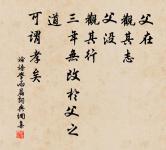 父在
觀其志
父没
觀其行
三年無改於父之
道
可謂孝矣
論語學而篇詞典網集